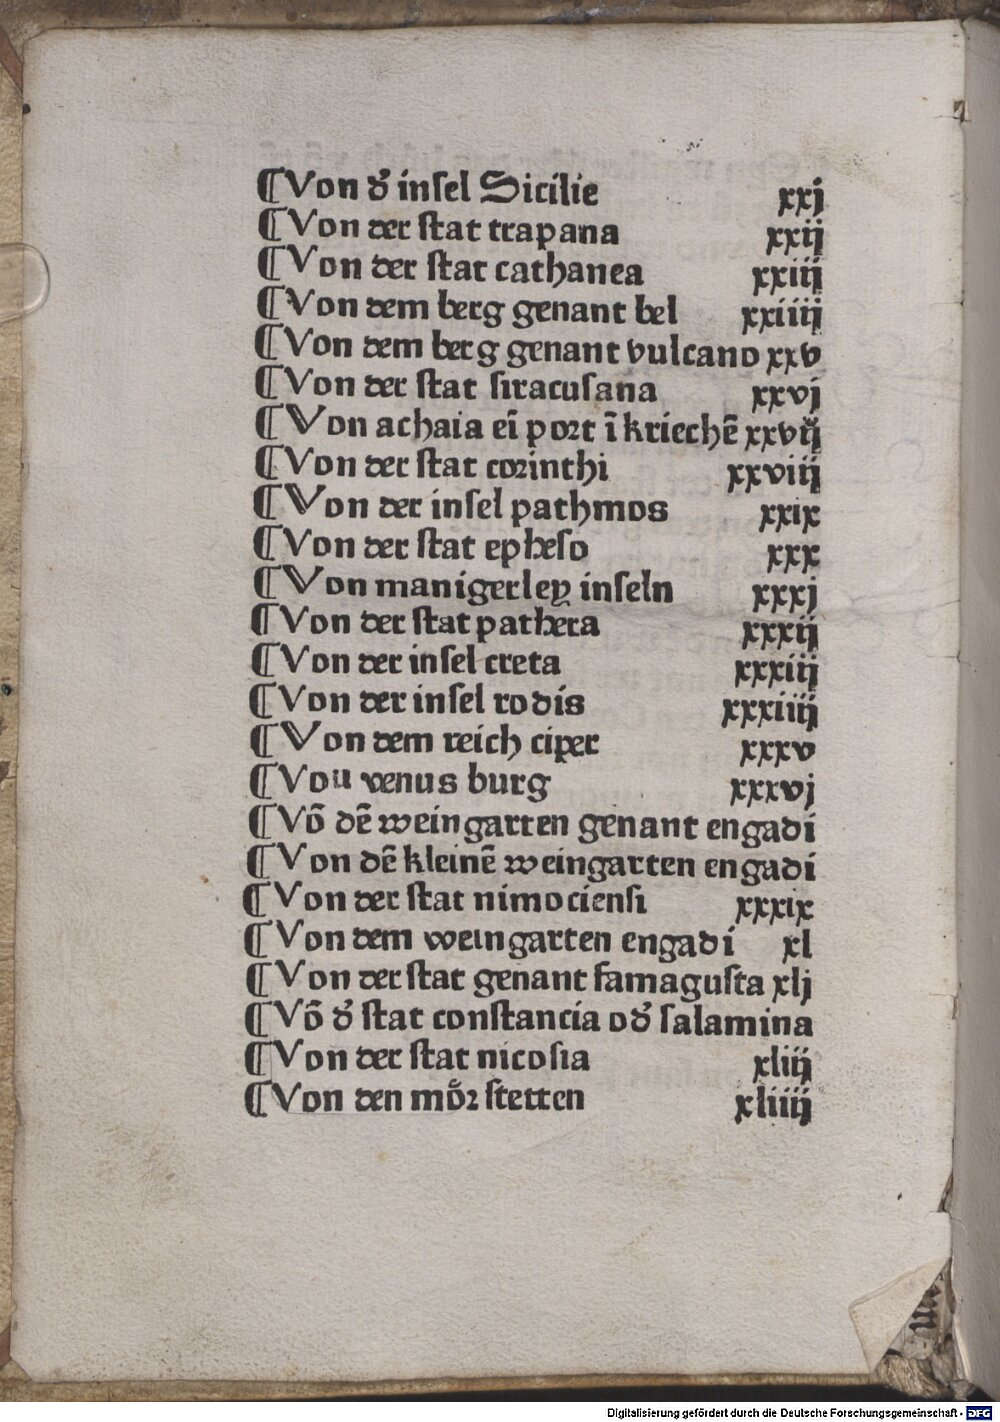 ¶Von dᷣ insel Sicilie xxj
¶Von der stat trapana xxij
¶Von der stat cathanea xxiij
¶Von dem berg genant bel xxiiij
¶Von dem berg genant vulcano xxv
¶Von der stat siracusana xxvj
¶Von achaia eī port ī kriechē xxvij
¶Von der stat corinthi xxviij
¶Von der insel pathmos xxix
¶Von der stat epheso xxx
¶Von manigerley inseln xxxj
¶Von der stat pathera xxxij
¶Von der insel creta xxxiij
¶Von der insel rodis xxxiiij
¶Von dem reich ciper xxxv
¶Vou venus burg xxxvj
¶Vō dē weingarten genant engadi
¶Von dē kleinē weingarten engadi
¶Von der stat nimociensi xxxix
¶Von dem weingarten engadi xl
¶Von der stat genant famagusta xlj
¶Vō dᷣ stat constancia odᷣ salamina
¶Von der stat nicosia xliij
¶Von den moͤr stetten xliiij
Digitalisierung gefördert durch die Deutsche Forschungsgemeinschaft - DFG